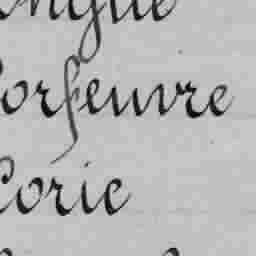 ongue
Corfeuvre
Corie